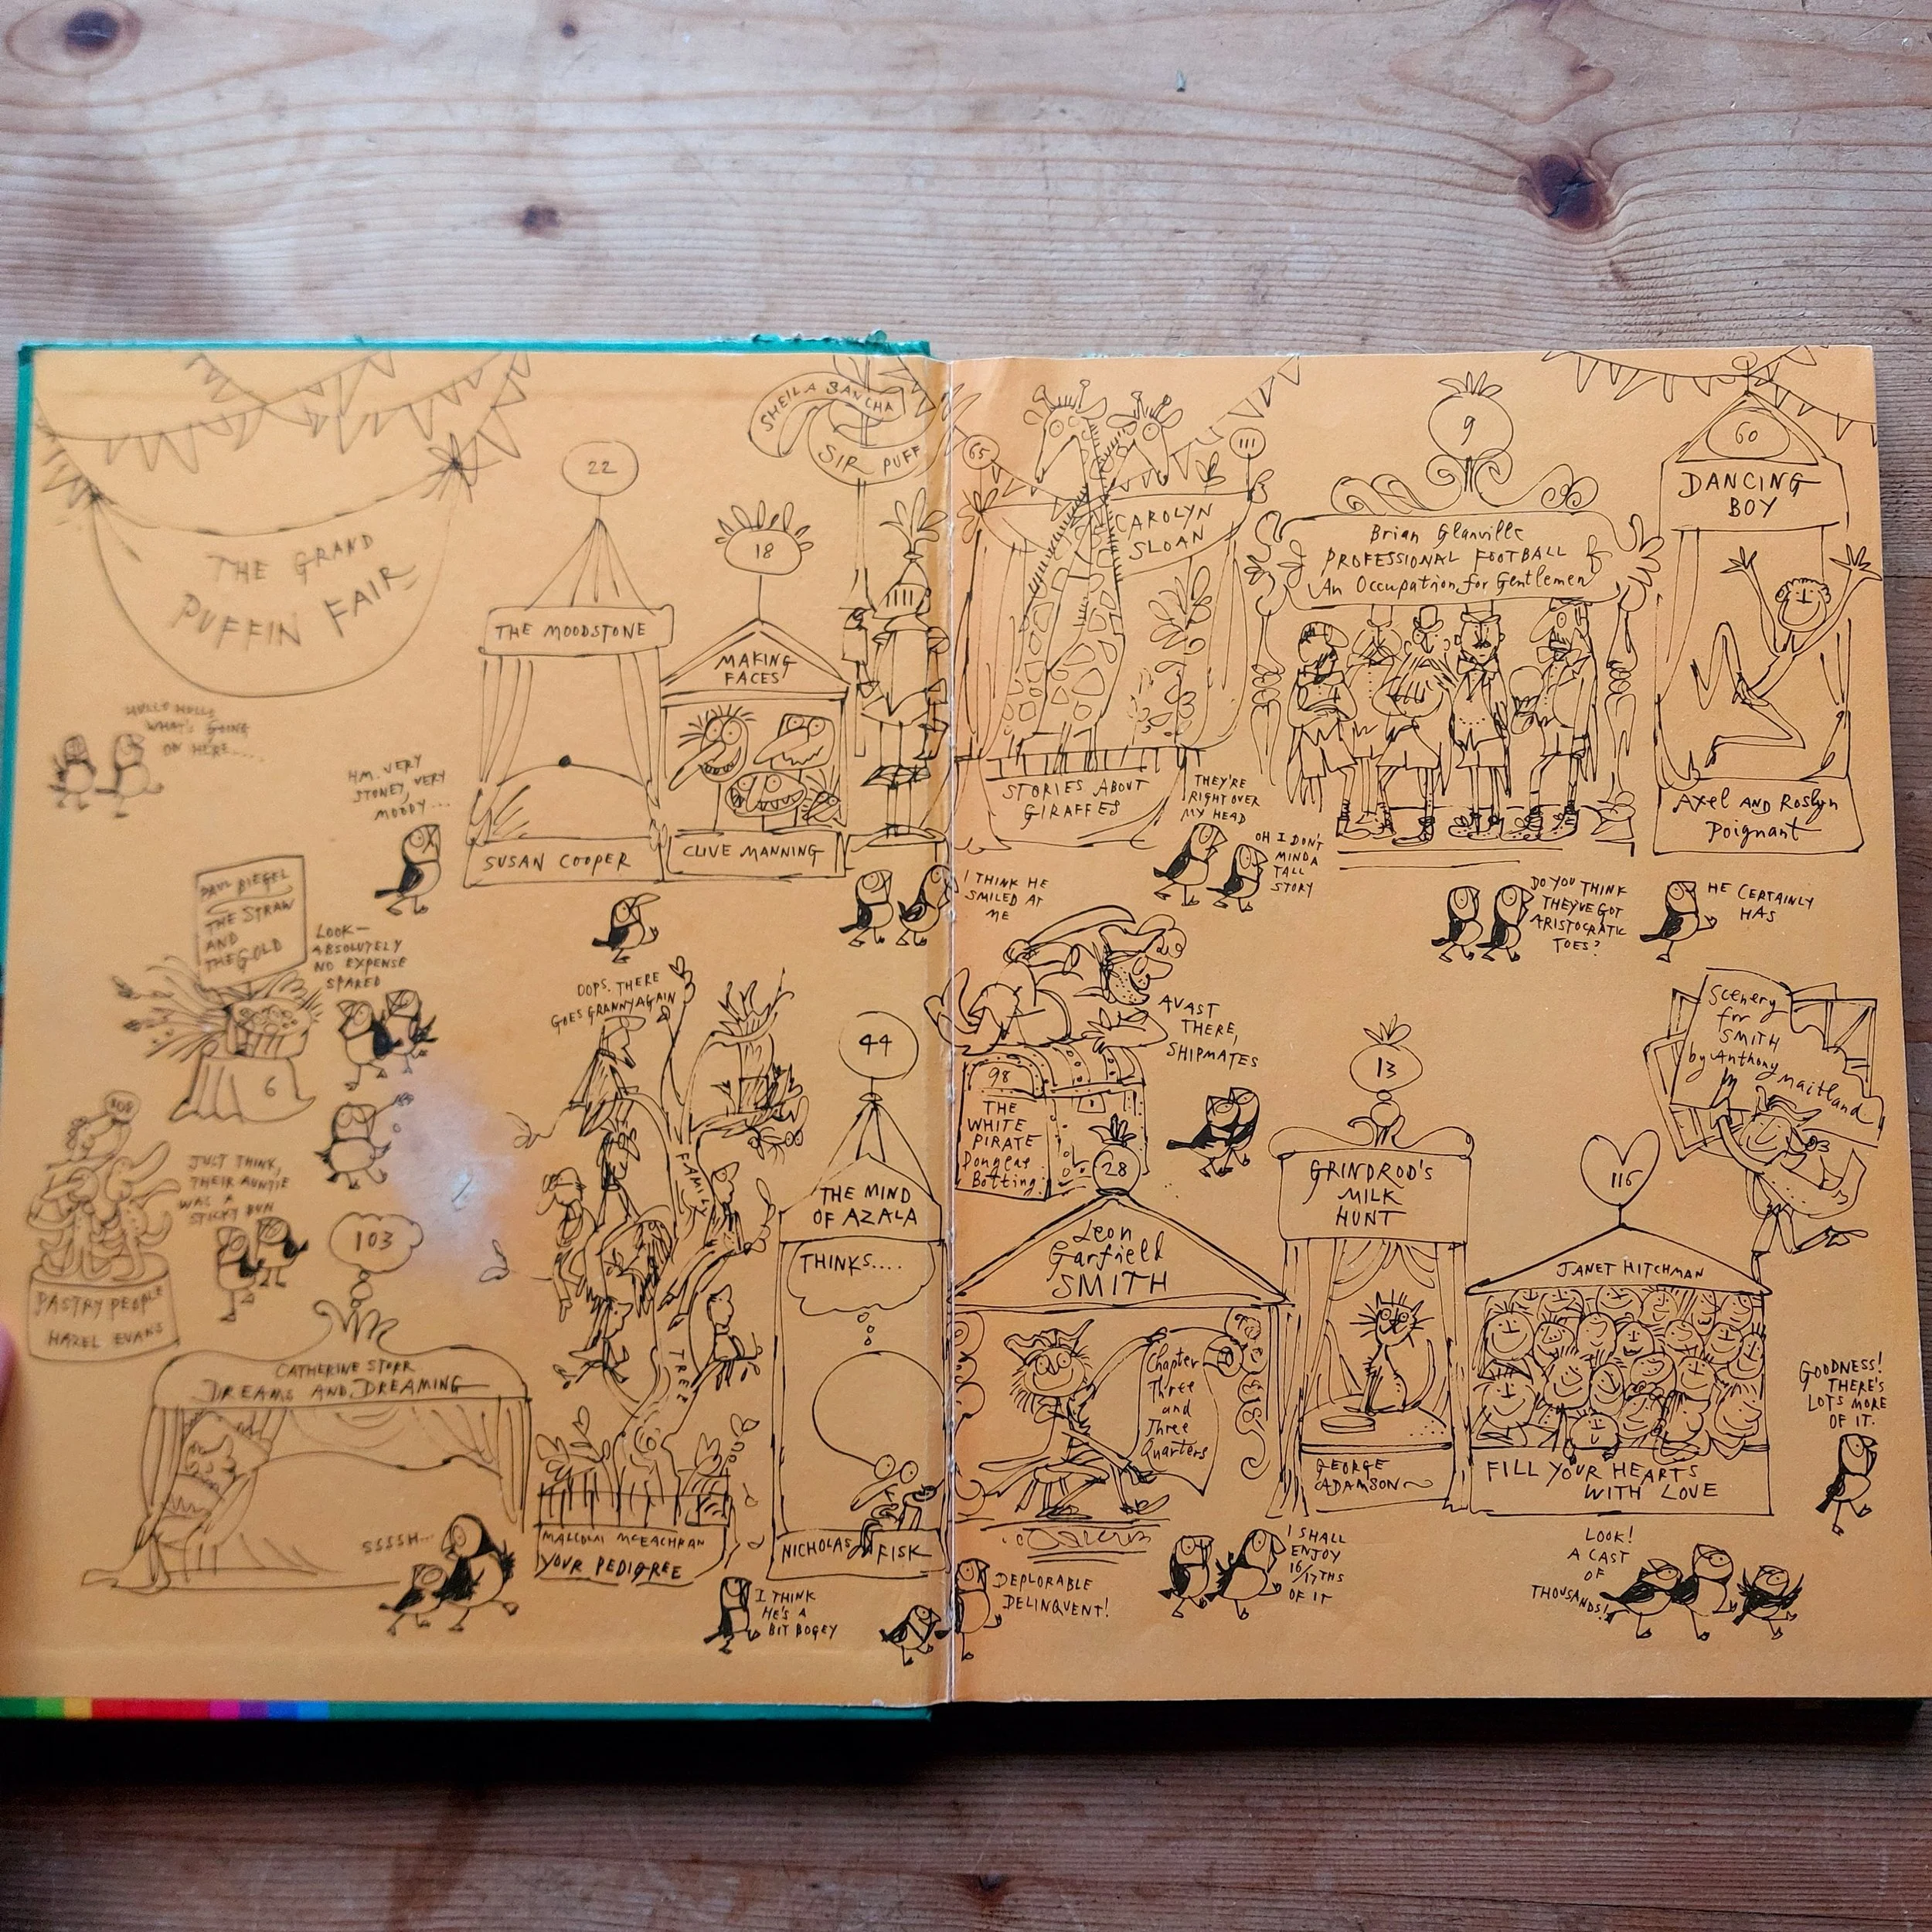 THE GRAND
PUFFIN FAIR
HULLO HULLO
WHAT'S GOING
ON HERE.....
HM. VERY
STONEY, VERY
MOODY...
22
THE MOODSTONE
SUSAN COOPER
18
MAKING
FACES
CLIVE MANNING
SHEILA SANCHA
SIR PUFF
65
I THINK HE
SMILED AT
ME
111
CAROLYN
SLOAN
STORIES ABOUT
GIRAFFES
THEY'RE
RIGHT OVER
MY HEAD
OH I DON'T
MIND A
TALL
STORY
9
Brian Glanville
PROFESSIONAL FOOTBALL
An Occupation for Gentlemen
DO YOU THINK
THEY'VE GOT
ARISTOCRATIC
TOES?
HE CERTAINLY
HAS
60
DANCING
BOY
Axel AND Roslyn
Poignant
PAUL BIEGEL
THE STRAW
AND
THE GOLD
6
LOOK—
ABSOLUTELY
NO EXPENSE
SPARED
108
JUST THINK,
THEIR AUNTIE
WAS A
STICKY BUN
PASTRY PEOPLE
HAZEL EVANS
103
CATHERINE STORR
DREAMS AND DREAMING
SSSSH...
OOPS. THERE
GOES GRANNY AGAIN
FAMILY
TREE
MALCOLM McEACHRAN
YOUR PEDIGREE
44
THE MIND
OF AZALA
THINKS....
NICHOLAS FISK
I THINK
HE'S A
BIT BOGEY
AVAST
THERE,
SHIPMATES
98
THE
WHITE
PIRATE
Douglas
Botting
28
Leon
Garfield
SMITH
Chapter
Three
and
Three
Quarters
DEPLORABLE
DELINQUENT!
I SHALL
ENJOY
16/17THS
OF IT
13
GRINDROD'S
MILK
HUNT
GEORGE
ADAMSON
Scenery
for
SMITH
by Anthony
Maitland
116
JANET HITCHMAN
FILL YOUR HEARTS
WITH LOVE
GOODNESS!
THERE'S
LOTS MORE
OF IT.
LOOK!
A CAST
OF
THOUSANDS!